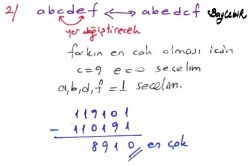 2) abcdef ↔ abedcf Sayılabilir
yer değiştirecek
farkın en çok olması için
c=9 e=0 seçelim
a,b,d,f =1 seçelim.
119101
- 110191
8910 en çok